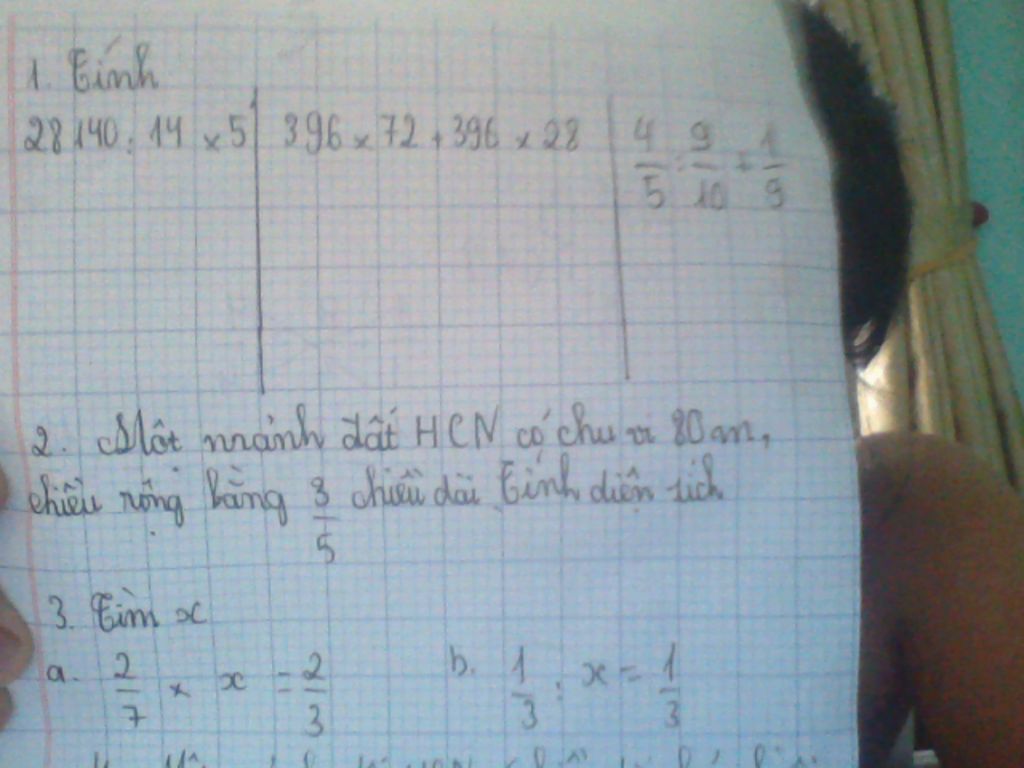 1. Tính
28140 : 14 × 5 | 396 × 72 + 396 × 28 | 4/5 : 9/10 + 1/9
2. Một mảnh đất HCN có chu vi 80m,
chiều rộng bằng 3/5 chiều dài Tính diện tích
3. Tìm x
a. 2/7 × x = 2/3 b. 1/3 : x = 1/3